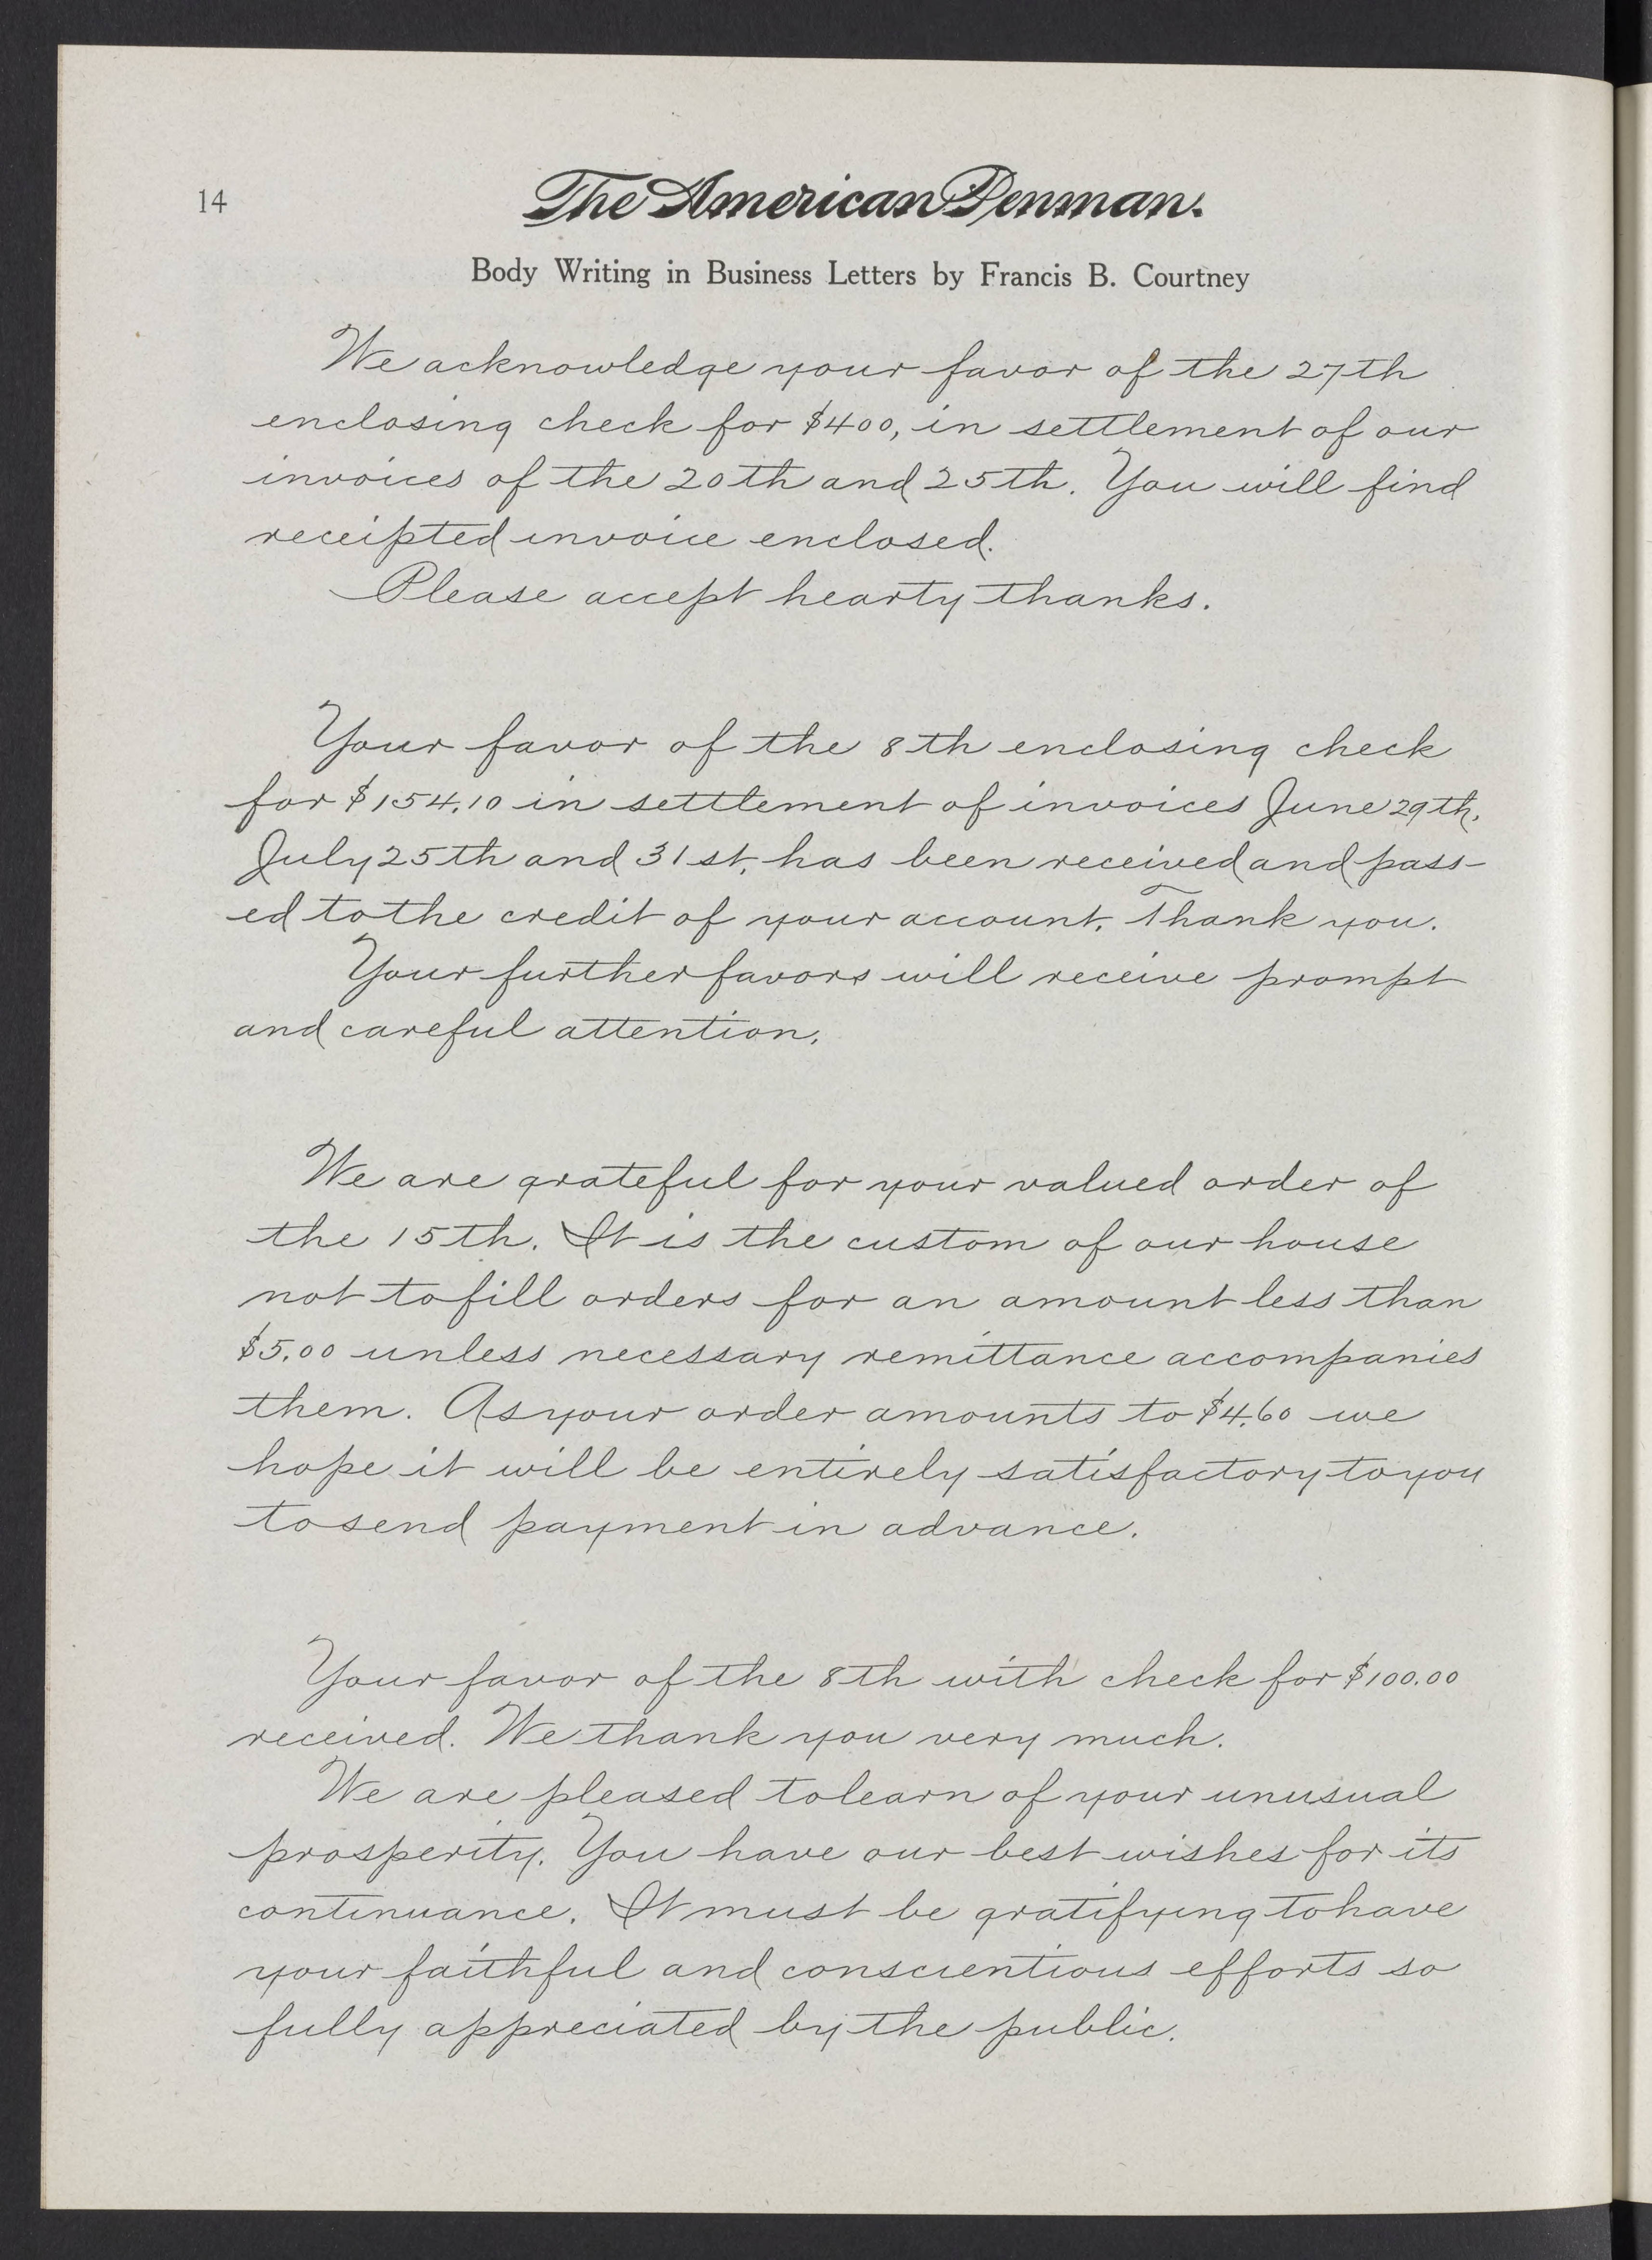 14
The American Penman.
Body Writing in Business Letters by Francis B. Courtney
We acknowledge your favor of the 27th
enclosing check for $400, in settlement of our
invoices of the 20th and 25th. You will find
receipted invoice enclosed.
Please accept hearty thanks.
Your favor of the 8th enclosing check
for $154.10 in settlement of invoices June 29th,
July 25th and 31st, has been received and pass-
ed to the credit of your account. Thank you.
Your further favors will receive prompt
and careful attention.
We are grateful for your valued order of
the 15th. It is the custom of our house
not to fill orders for an amount less than
$5.00 unless necessary remittance accompanies
them. As your order amounts to $4.60 we
hope it will be entirely satisfactory to you
to send payment in advance.
Your favor of the 8th with check for $100.00
received. We thank you very much.
We are pleased to learn of your unusual
prosperity. You have our best wishes for its
continuance. It must be gratifying to have
your faithful and conscientious efforts so
fully appreciated by the public.